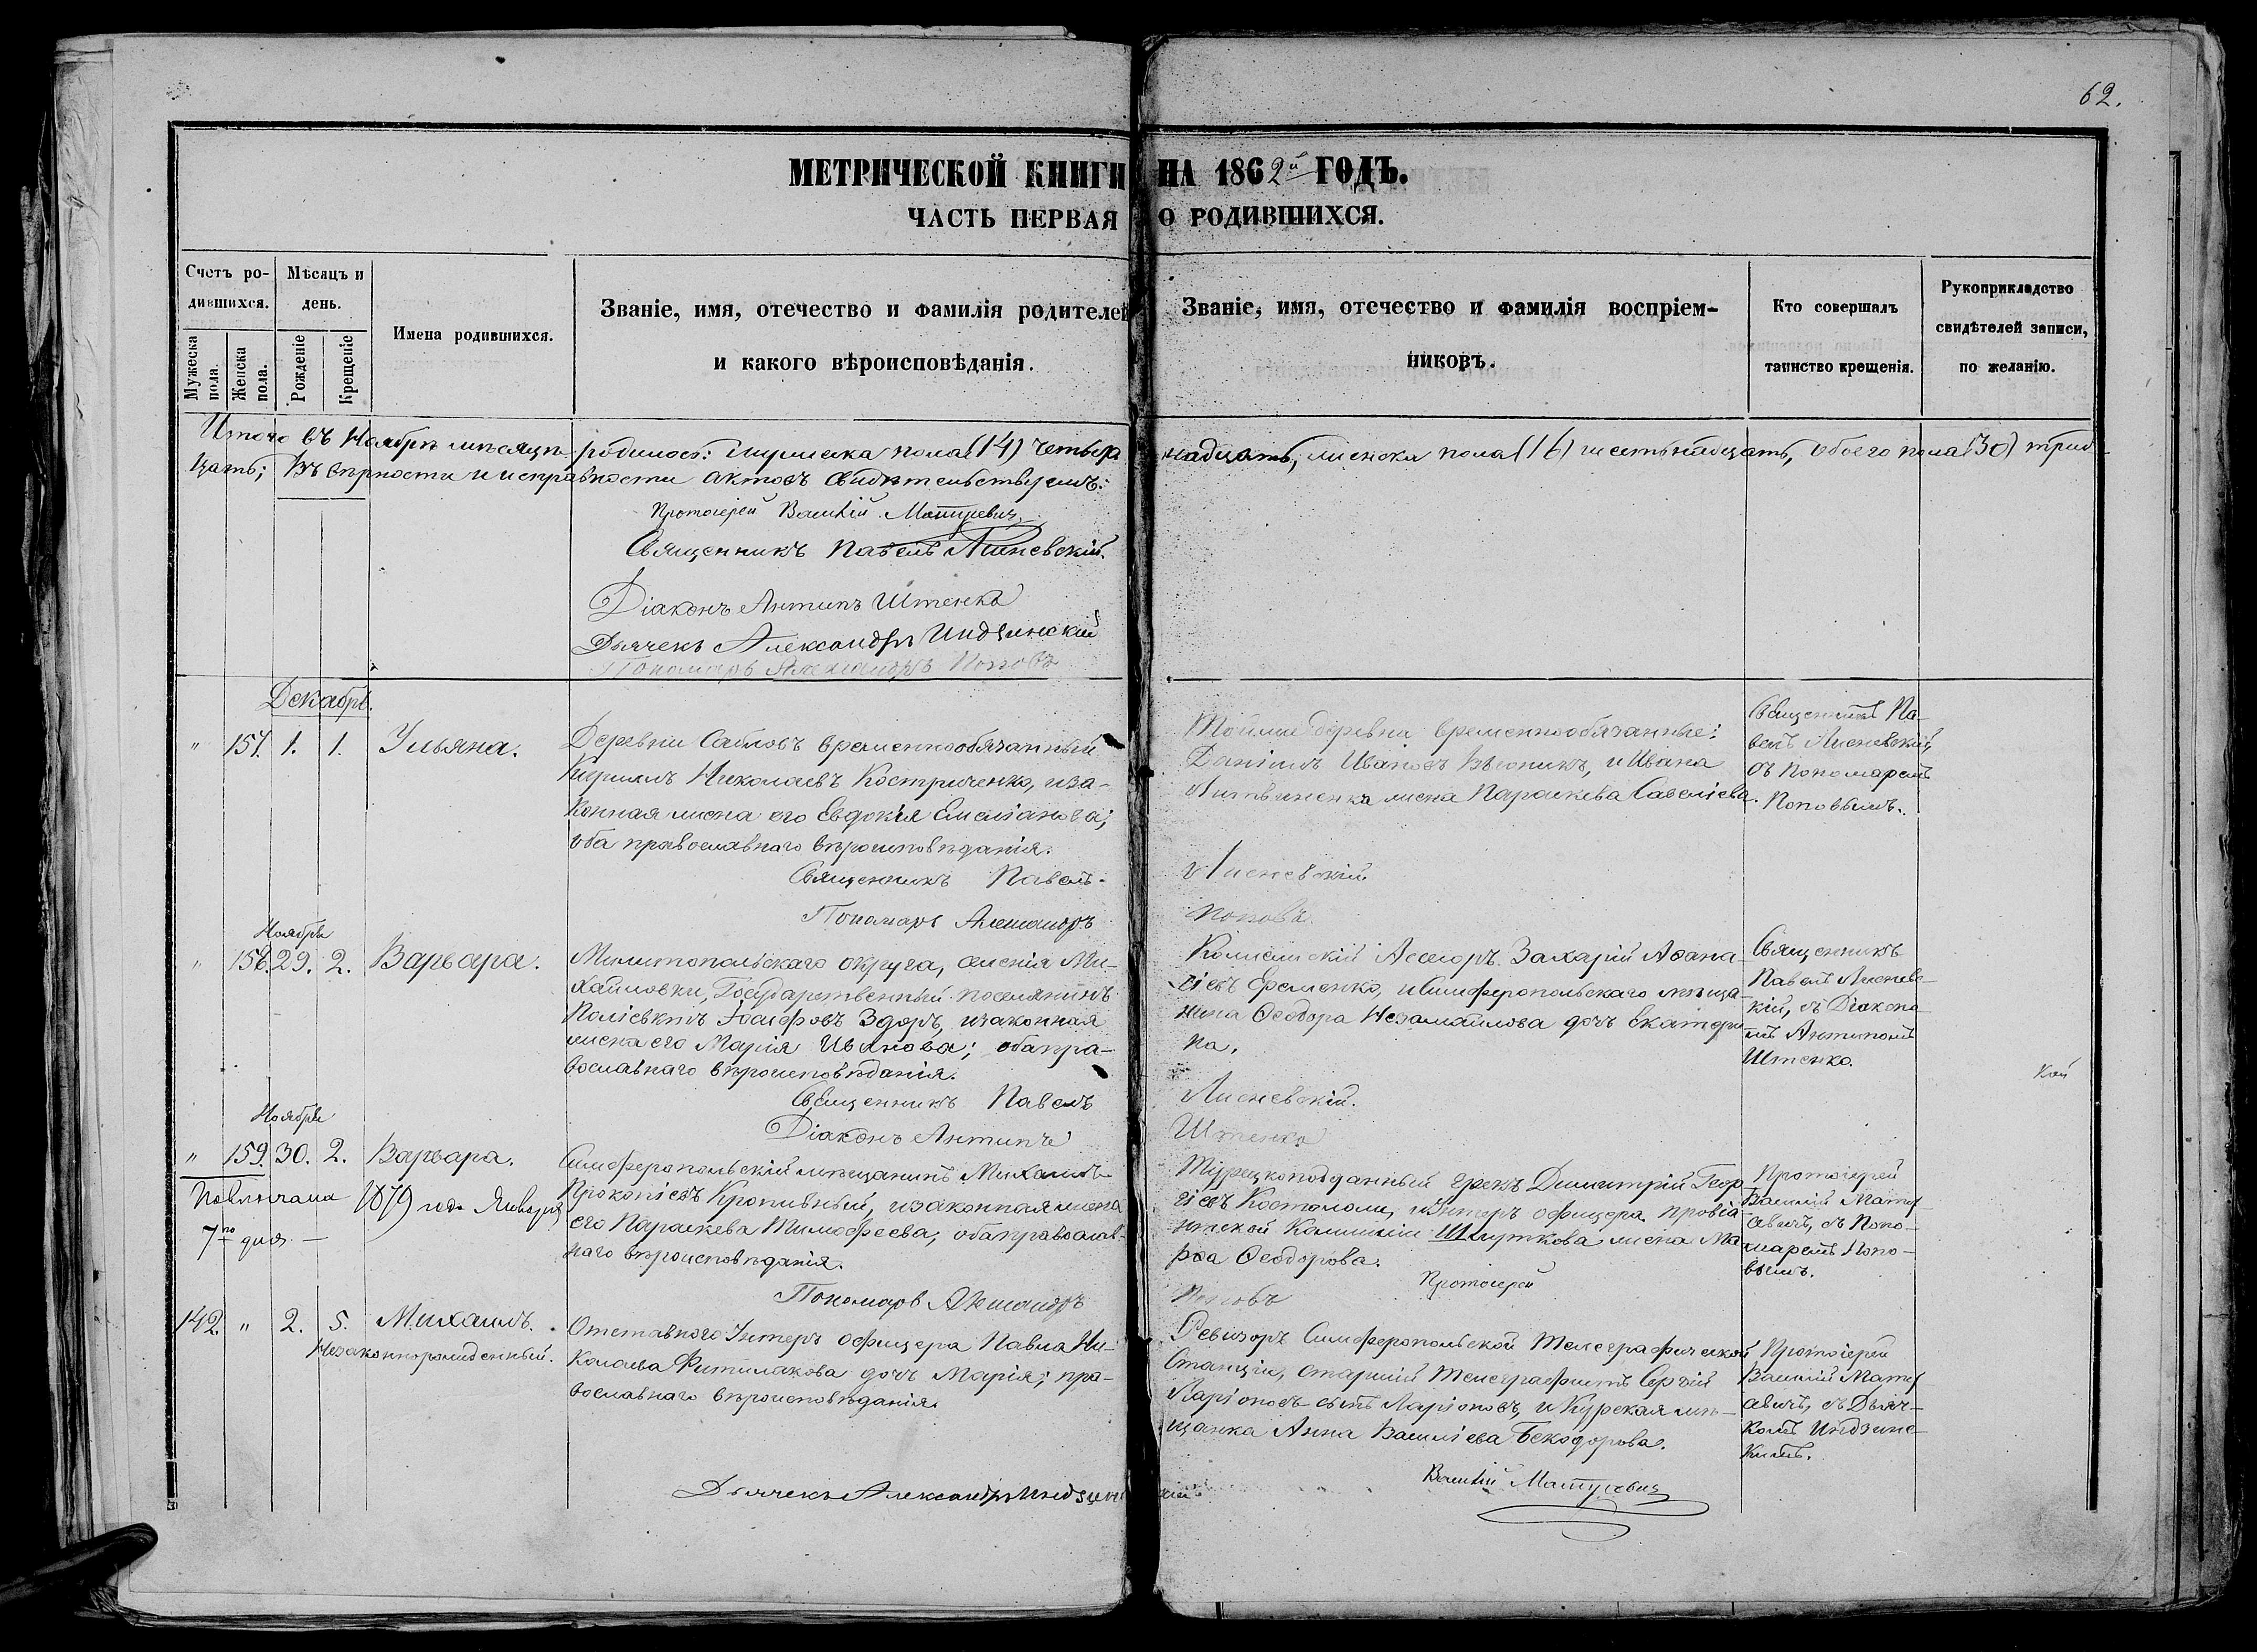 62.
МЕТРИЧЕСКОЙ КНИГИ НА 1862й ГОДЪ.
ЧАСТЬ ПЕРВАЯ О РОДИВШИХСЯ.
Счетъ ро-
дившихся.
Мужеска пола.
Женска пола.
Мѣсяцъ и
день.
Рожденіе
Крещеніе
Имена родившихся.
Званіе, имя, отечество и фамилія родителей
и какого вѣроисповѣданія.
Званіе, имя, отечество и фамилія воспріем-
никовъ.
Кто совершалъ
таинство крещенія.
Рукоприкладство
свидѣтелей записи,
по желанію.
Итого въ Ноябрѣ мѣсяцѣ родилось: мужеска пола (14) четыр надцать, женска пола (16) шестьнадцать, обоего пола (30) трид-
цать; Въ вѣрности и исправности актовъ свидѣтельствуемъ:
Протоіерей Василій Матусевич
Священникъ Павелъ
Діаконъ Антипъ Штенко
Дьячекъ Александръ Индзинскій
Пономарь Александръ Поповъ
Декабрь.
" 157. 1. 1. Ульяна.
Деревни Сабловъ временнообязанный
Кириллъ Николаевъ Костриченко, иза-
конная жена его Евдокія Емеліанова;
оба православнаго вѣроисповѣданія.
Священникъ Павелъ
Пономарь Александръ
Тойже деревни временнообязанные:
Даніилъ Ивановъ и Ивана
Литвиненка жена Параскева Савеліева.
Поповъ.
Священникъ Па-
велъ
съ Пономаремъ
Поповымъ.
Ноября
" 158. 29. 2. Варвара.
Мелитопольскаго округа, селенія Ми-
хайловки, Государственный поселянинъ
Поліевктъ Іосифовъ Здоръ, изаконная
жена его Марія Иванова; оба пра-
вославнаго вѣроисповѣданія.
Священникъ Павелъ
Діаконъ Антипъ
Колежскій Асесоръ Захарій Афана-
сіевъ Еременко, и Симферопольскаго мѣща-
нина Ѳеодора Незамайлова дочь Екатери-
на.
Штенко
Священникъ
Павелъ
кій, съ Діакono-
мъ Антипомъ
Штенко.
Ноября
" 159. 30. 2. Варвара.
1879 года Января
7го дня
Симферопольскій мѣщанинъ Михаилъ
Прокопіевъ Кропивный, изаконная жена
его Параскева Тимофеева; оба православ-
наго вѣроисповѣданія.
Пономарь Александръ
Турецкоподданный грекъ Димитрій Геор-
гіевъ и Унтеръ офицера провіа-
нтской Комисіи жена Ма-
рѳа Ѳеодорова.
Протоіерей
Поповъ
Протоіерей
Василій Матус
евичъ, съ Поно-
маремъ Попо-
вымъ.
142. " 2. 5. Михаилъ.
Незаконнорожденный.
Отставного Унтеръ офицера Павла Ни-
колаева дочь Марія; пра-
вославнаго вѣроисповѣданія.
Дьячекъ Александръ Индзинскій
Ревизоръ Симферопольской Телеграфической
Станціи, старшій Телеграфистъ Сергій
Ларіоновъ сынъ Ларіоновъ, и Курская мѣ-
щанка Анна Василіева
Василій Матусевич
Протоіерей
Василій Матус
евичъ, съ Дьяч-
комъ Индзинс-
кимъ.